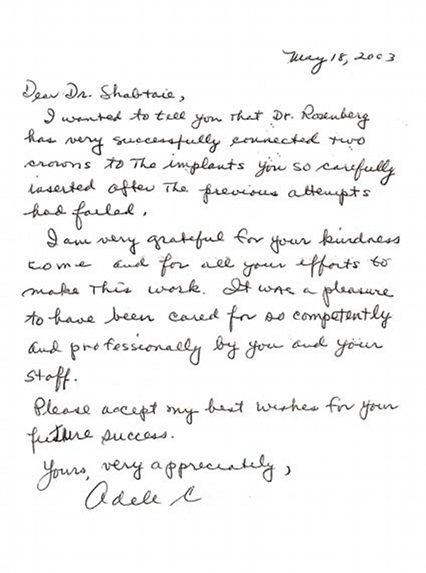 May 18, 2003
Dear Dr. Shabtaie,
I wanted to tell you that Dr. Rosenberg
has very successfully connected two
crowns to the implants you so carefully
inserted after the previous attempts
had failed.
I am very grateful for your kindness
to me and for all your efforts to
make this work. It was a pleasure
to have been cared for so competently
and professionally by you and your
staff.
Please accept my best wishes for your
future success.
Yours, very appreciately,
Adele C